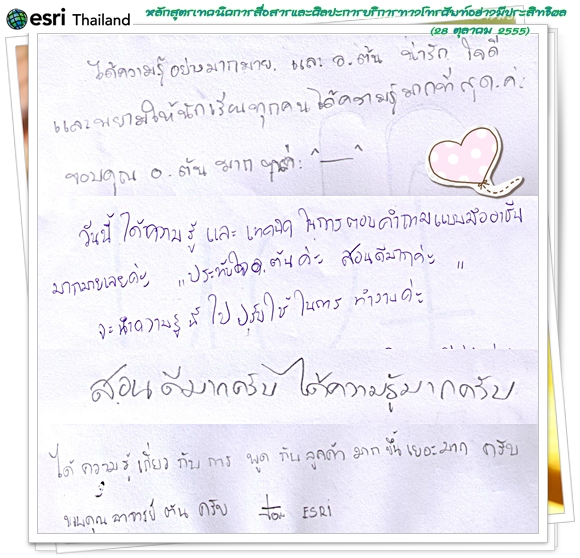 esri Thailand
หลักสูตรเทคนิคการสื่อสารและศิลปะการบริการทางโทรศัพท์อย่างมีประสิทธิผล
(28 ตุลาคม 2555)
ได้ความรู้อย่างมากมาย. และ อ.ต้น น่ารัก ใจดี
และพยามให้นักเรียนทุกคนได้ความรู้มากที่สุด.ค่ะ
ขอบคุณ อ.ต้น มาก ค่ะ ^__^
วันนี้ ได้ความรู้ และ เทคนิค ในการตอบคำถามแบบมืออาชีพ
มากมายเลยค่ะ "ประทับใจอ.ต้นค่ะ สอนดีมากค่ะ "
จะนำความรู้นี้ ไปปรับใช้ในการ ทำงานค่ะ
สอนดีมากครับ ได้ความรู้มากครับ
ได้ ความรู้ เกี่ยว กับ การ พูด กับ ลูกค้า มาก ขึ้น เยอะมาก ครับ
ขอบคุณ อาจารย์ ต้น ครับ ESRI